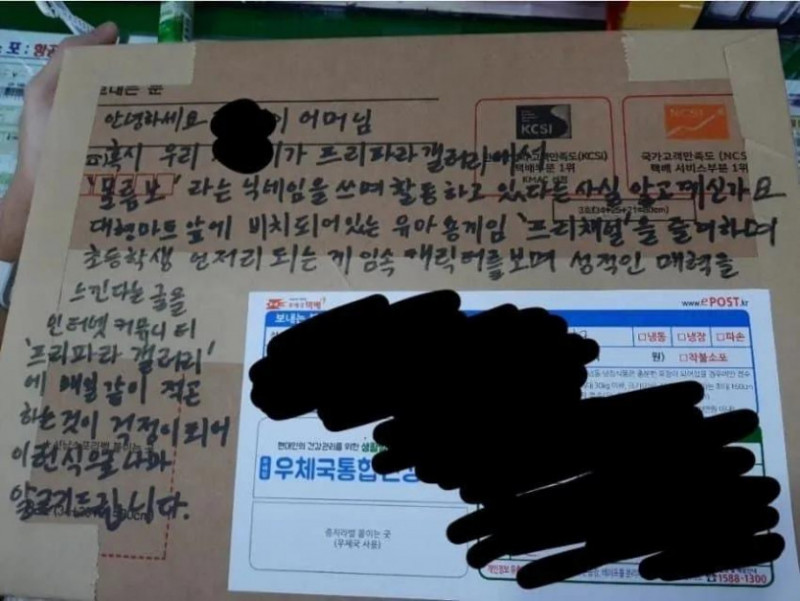 보내는 분
안녕하세요 이 어머님
혹시 우리 이가 프리파라갤러리에서
"물름보" 라는 닉네임을 쓰며 활동하고 있다는 사실 알고계신가요
대형마트 앞에 비치되어있는 유아용게임 '프리채널'을 즐겨하며
초등학생 언저리 되는 게임속 캐릭터를 보며 성적인 매력을
느낀다는 글을
인터넷 커뮤니티
'프리파라 갤러리'
에 매일같이 적곤
하는것이 걱정이되어
이런식으로나마
알려드립니다.
KCSI
고객만족도(KCSI)
택배부문 1위
KMAC 선정
NCSI
국가고객만족도 (NCS
택배 서비스부문 1위
www.ePOST.kr
보내는
□냉동 □냉장 □파손
원) □착불소포
현대인의 건강관리를 위한
우체국통합건강
증지라벨 붙이는 곳
(우체국 사용)
☎1588-1300